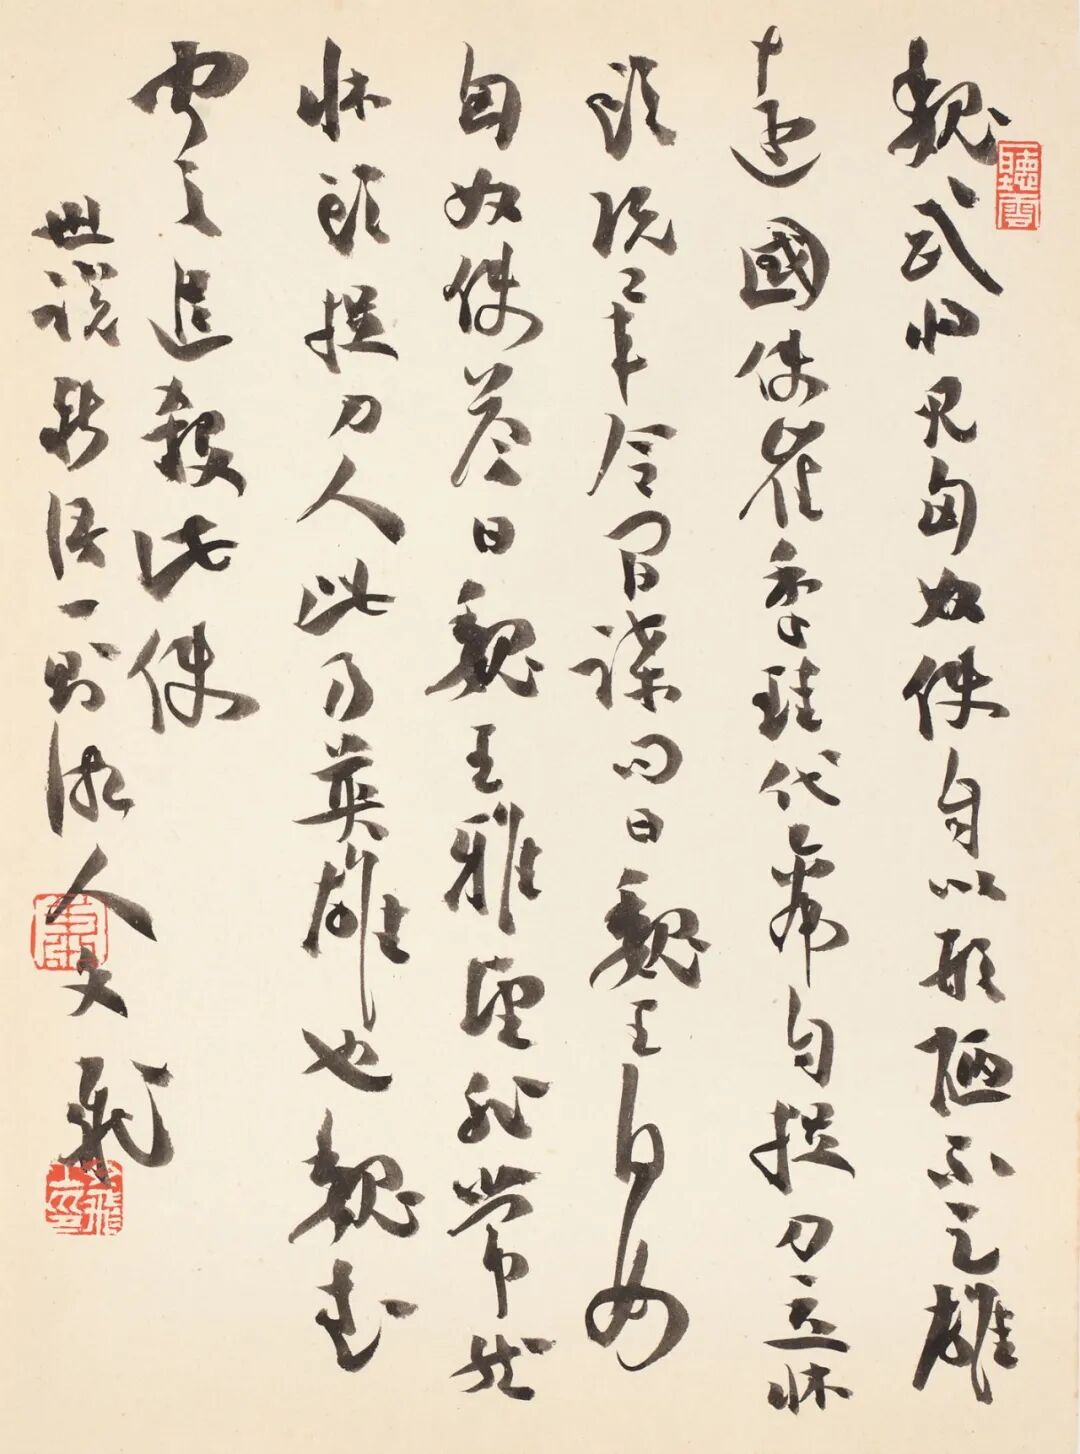 聽雲
魏武將見匈奴使自以形陋不足雄
遠國使崔季珪代帝自捉刀立牀
頭既畢令間諜問曰魏王何如
匈奴使答曰魏王雅望非常然
牀頭捉刀人此乃英雄也魏武
聞之追殺此使
世說新語一則湘人文飛